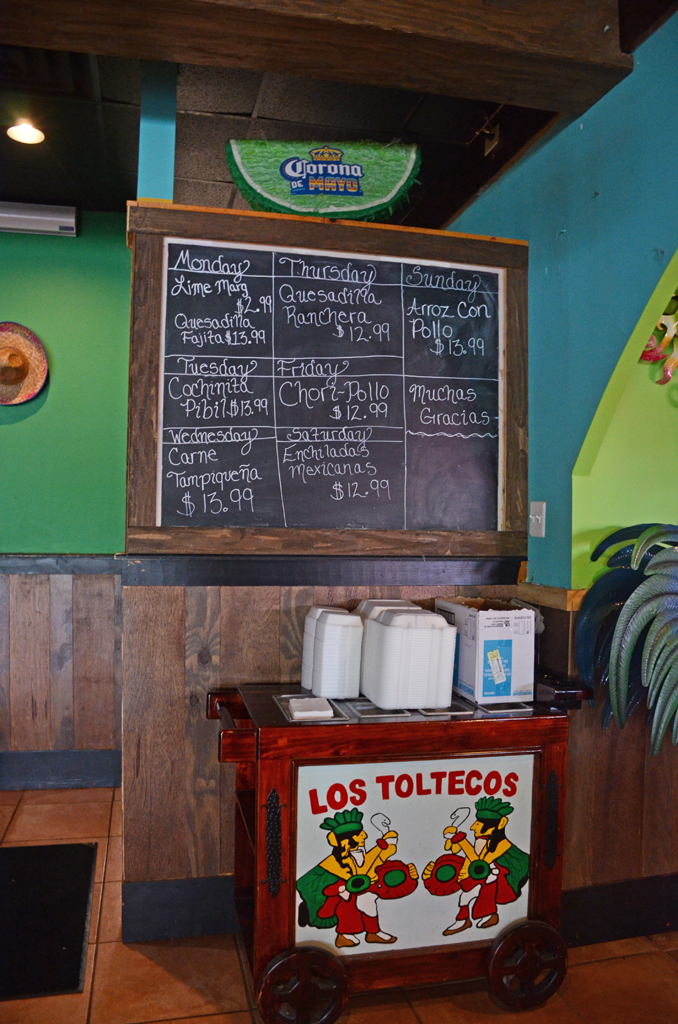 Corona
DE MAYO
Monday
Lime Marg
$2.99
Quesadilla
Fajita $13.99
Tuesday
Cochinita
Pibil $13.99
Wednesday
Carne
Tampiqueña
$13.99
Thursday
Quesadilla
Ranchera
$12.99
Friday
Chori-Pollo
$12.99
Saturday
Enchiladas
Mexicanas
$12.99
Sunday
Arroz Con
Pollo
$13.99
Muchas
Gracias
LOS TOLTECOS